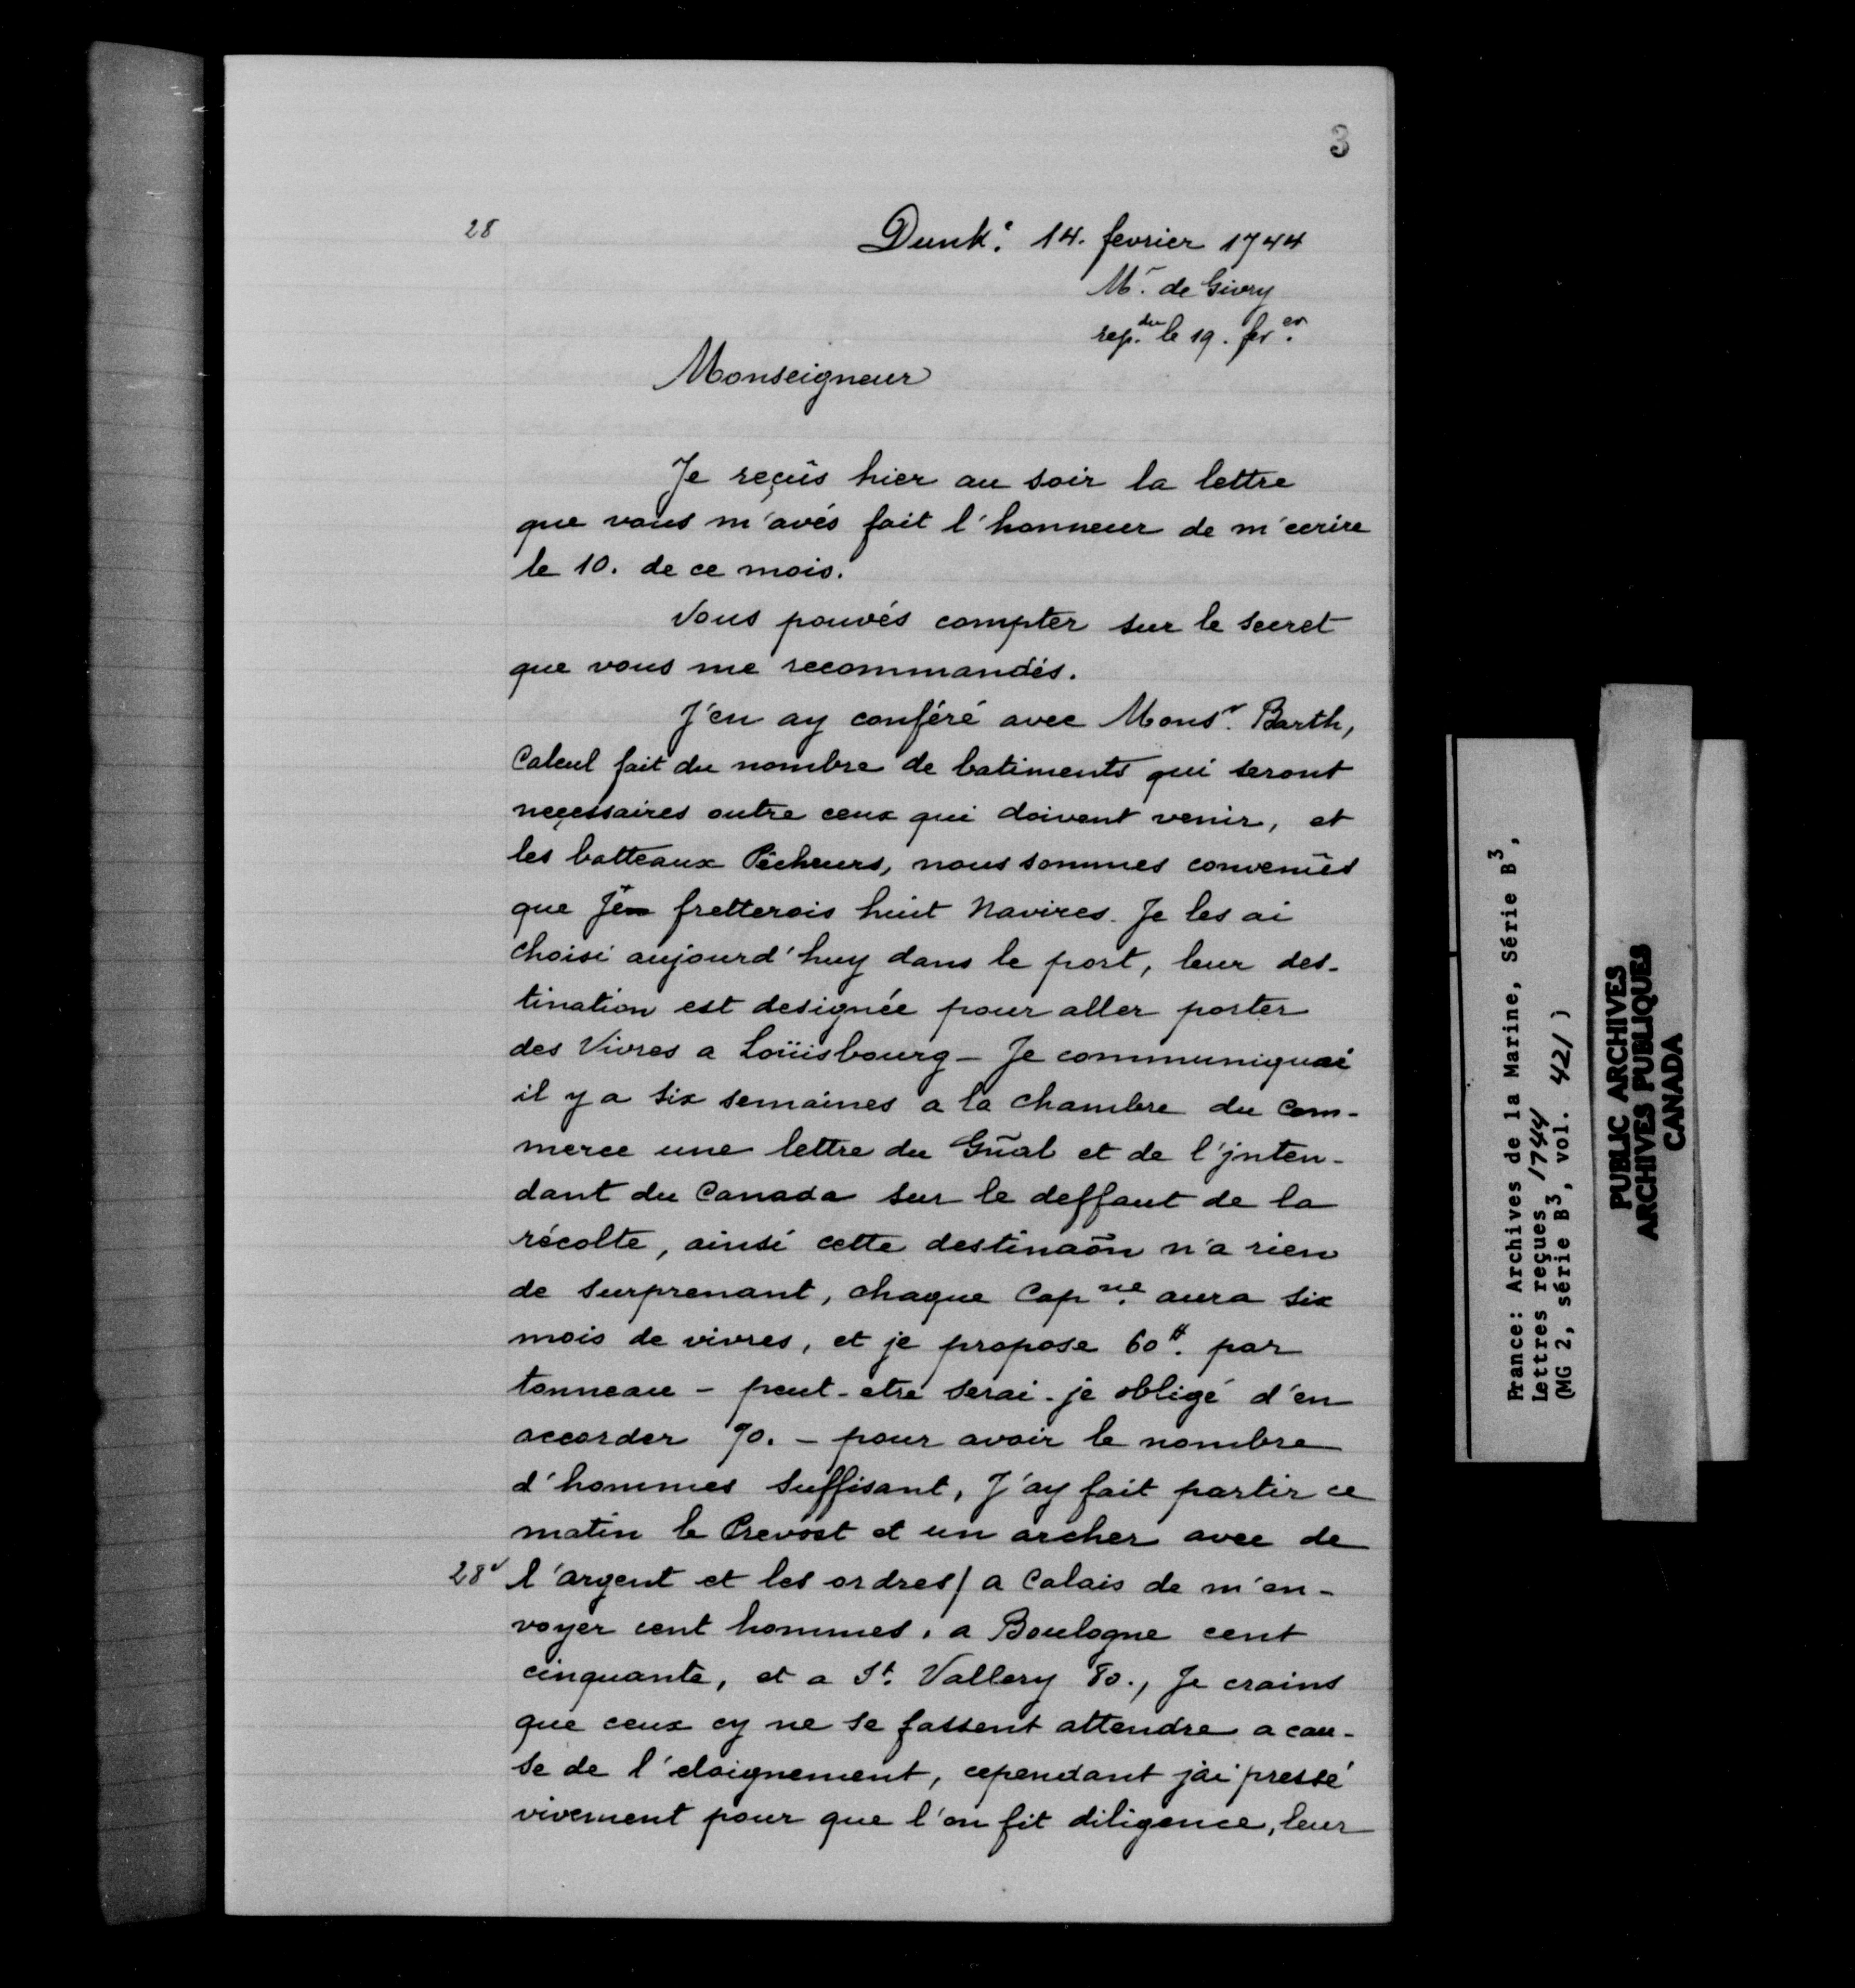 3
28
Dunk.e 14. fevrier 1744
Mr. de Givry
rep.du le 19. fev.er
Monseigneur
Je reçûs hier au soir la lettre
que vous m'avés fait l'honneur de m'ecrire
le 10. de ce mois.
Vous pouvés compter sur le secret
que vous me recommandés.
J'en ay conféré avec Monsr. Barth,
Calcul fait du nombre de batiments qui seront
neçessaires outre ceux qui doivent venir, et
les batteaux Pêcheurs, nous sommes convenûs
que J'en fretterois huit Navires. Je les ai
choisi aujourd'huy dans le port, leur des-
tination est designée pour aller porter
des Vivres a Loüisbourg – Je communiquai
il y a six semaines a la chambre du Com-
merce une lettre du Gñal et de l'jnten-
dant du Canada sur le deffaut de la
récolte, ainsi cette destinaõn n'a rien
de surprenant, chaque Cap.ne aura six
mois de vivres, et je propose 60.# par
tonneau – peut-etre serai-je obligé d'en
accorder 70. – pour avoir le nombre
d'hommes suffisant, J'ay fait partir ce
matin le Prevost et un archer avec de
28v l'argent et les ordres/ a Calais de m'en-
voyer cent hommes, a Boulogne cent
cinquante, et a St. Vallery 80., Je crains
que ceux cy ne se fassent attendre a cau-
se de l'eloignement, cependant j'ai pressé
vivement pour que l'on fit diligence, leur
France: Archives de la Marine, Série B3,
Lettres reçues 1744
(MG 2, série B3, vol. 421)
PUBLIC ARCHIVES
ARCHIVES PUBLIQUES
CANADA